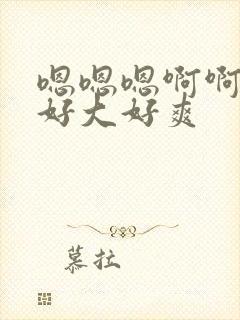 嗯嗯嗯啊啊
好大好爽
慕拉